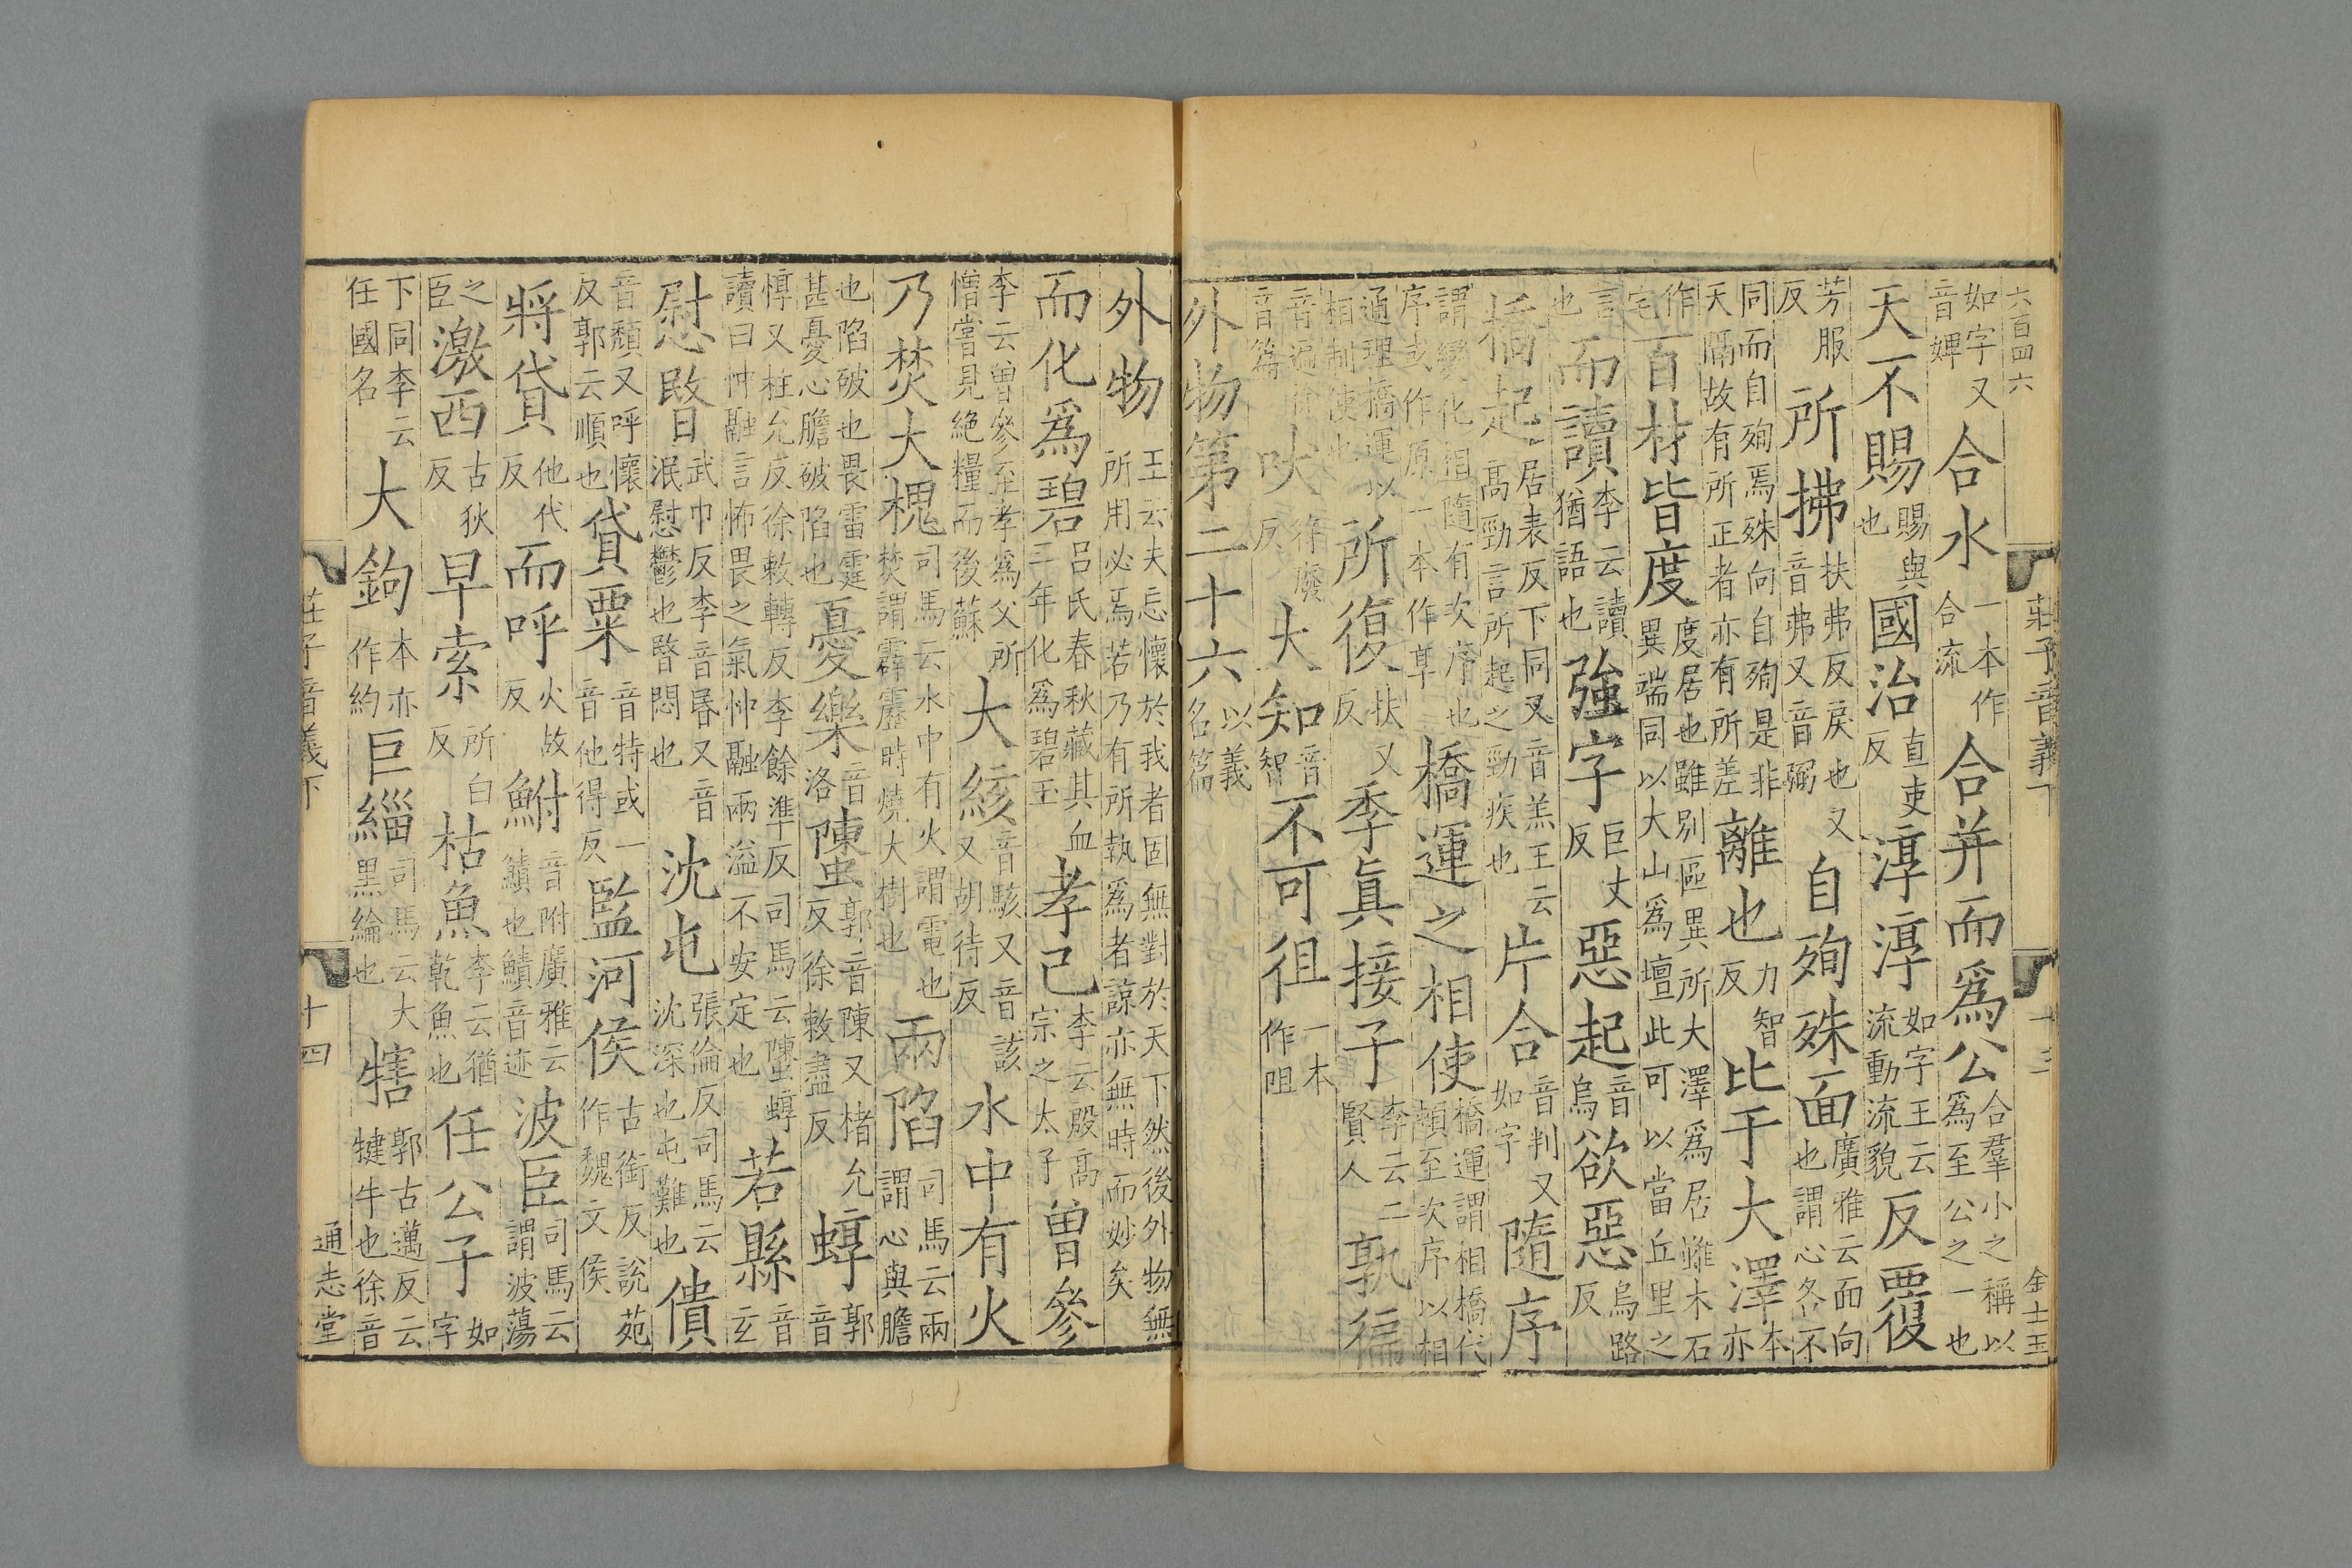 六百四六 莊子音義下 十三 金士玉
如字又音婢合水一本作合流合并而爲公合羣小之稱以爲至公之一也
天不賜賜與也國治直吏反淳淳如字王云流動流貌反覆
芳服反所拂扶弗反戾也又音弗又音弼自殉殊面廣雅云面向也謂心各不
同而自殉焉殊向自殉是非天隔故有所正者亦有所差離也力智反比于大澤本亦
作宅百材皆度度居也雖別區異所大澤爲居雖木石異端同以大山爲壇此可以當丘里之
言也而讀李云讀猶語也強字巨丈反惡起音烏欲惡烏路反
橋起居表反下同又音羔王云高勁言所起之勁疾也片合音判又如字隨序
謂變化相隨有次序也序或作原一本作享橋運之相使橋運謂相橋代頓至次序以相
通理橋運以相制使也所復扶又反季眞接子李云二賢人孰徧
音遍徐音篇吠徐廢反大知音智不可徂一本作阻
外物第二十六以義名篇
外物王云夫忘懷於我者固無對於天下然後外物無所用必焉若乃有所執爲者諒亦無時而妙矣
而化爲碧呂氏春秋藏其血三年化爲碧玉孝己李云殷高宗之太子曾參
李云曾參至孝爲父所憎嘗見絕糧而後蘇大絯音駭又音該又胡待反水中有火
乃焚大槐司馬云水中有火謂電也焚謂霹靂時燒大樹也兩陷司馬云兩謂心與膽
也陷破也畏雷霆甚憂心膽破陷也憂樂音洛䗞郭音陳又楮允反徐敕盡反蜳郭音
惇又柱允反徐敕轉反李餘準反司馬云䗞蜳讀曰忡融言怖畏之氣忡融兩溢不安定也若縣音玄
慰暋武巾反李音昬又音泯慰鬱也暋悶也沈屯張倫反司馬云沈深也屯難也僓
音頹又呼懷反郭云順也貸粟音特或一音他得反監河侯古銜反說苑作魏文侯
將貸他代反而呼火故反鮒音附廣雅云鰿也鰿音迹波臣司馬云謂波蕩
之臣激西古狄反早索所白反枯魚李云猶乾魚也任公子如字
下同李云任國名大鉤本亦作約巨緇司馬云大黑綸也犗郭古邁反云犍牛也徐音
莊子音義下 十四 通志堂